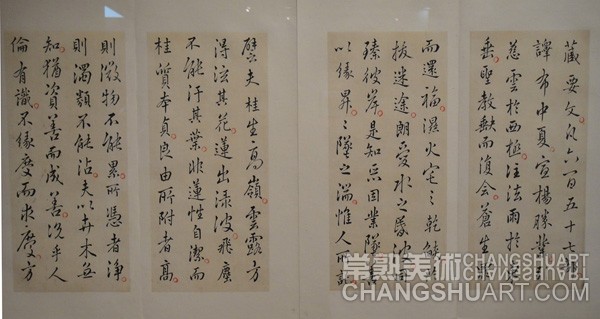 藏要文凡六百五十七部
譯布中夏宣楊勝業引
慈雲於西極注法雨於東
垂聖教缺而復全蒼生罪
而還福濕火宅之乾焰
拔迷途朗愛水之昏波同
臻彼岸是知惡因業墜善
以緣昇々墜之端惟人所託
譬夫桂生高嶺雲露方
得泫其花蓮出淥波飛塵
不能汙其葉非蓮性自潔而
桂質本貞良由所附者高
則微物不能累所憑者淨
則濁類不能沾夫以卉木無
知猶資善而成善況乎人
倫有識不緣慶而求慶方
常熟美術
CHANGSHUART.COM